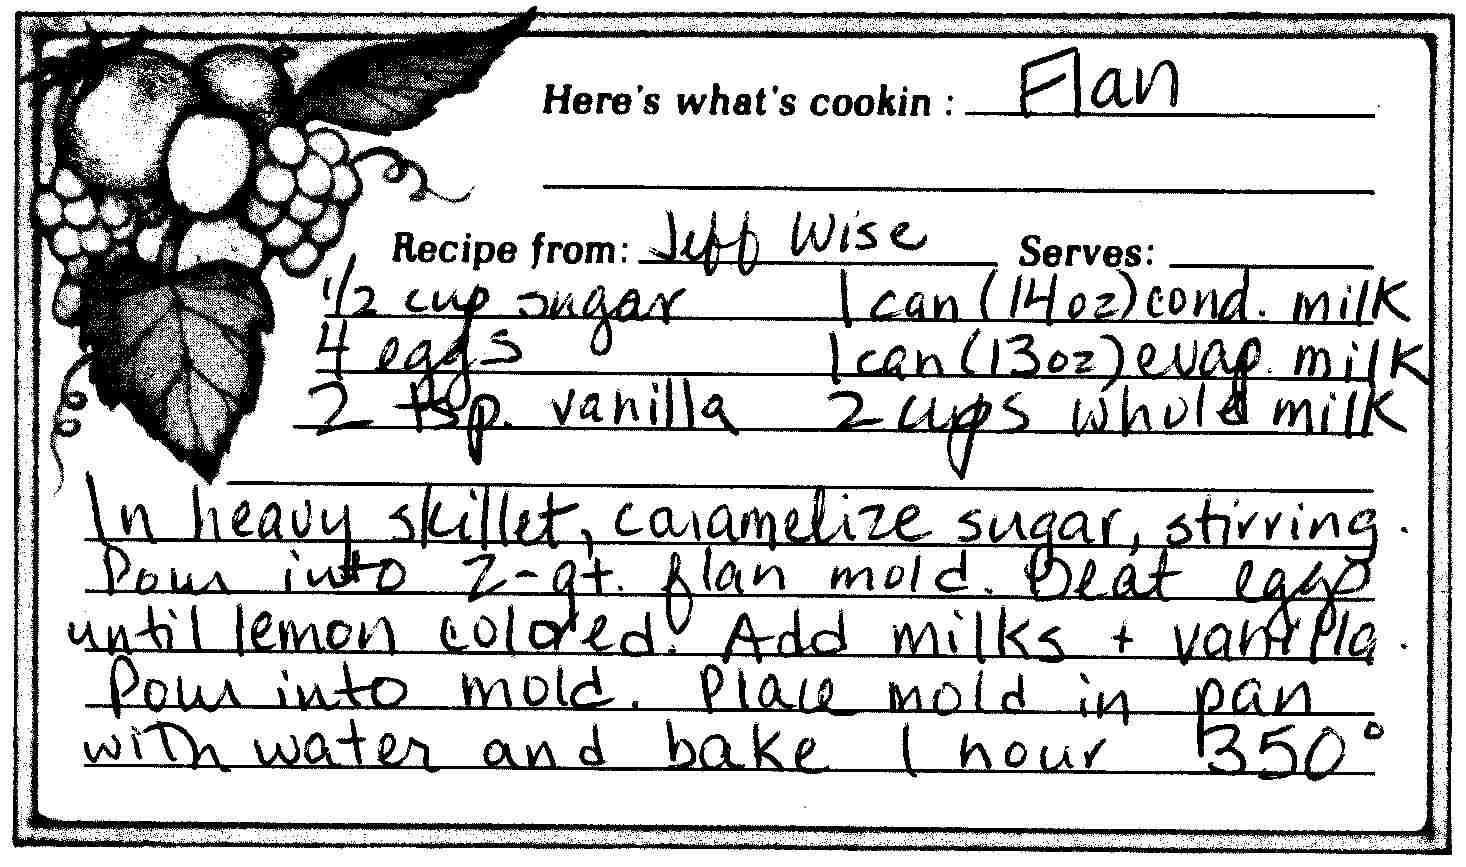 Here's what's cookin: Flan
Recipe from: Jeff Wise Serves:
1/2 cup sugar 1 can (14oz) cond. milk
4 eggs 1 can (13oz) evap. milk
2 tsp. vanilla 2 cups whole milk
In heavy skillet, caramelize sugar, stirring.
Pour into 2-qt. flan mold. Beat eggs
until lemon colored. Add milks + vanilla.
Pour into mold. Place mold in pan
with water and bake 1 hour 350°